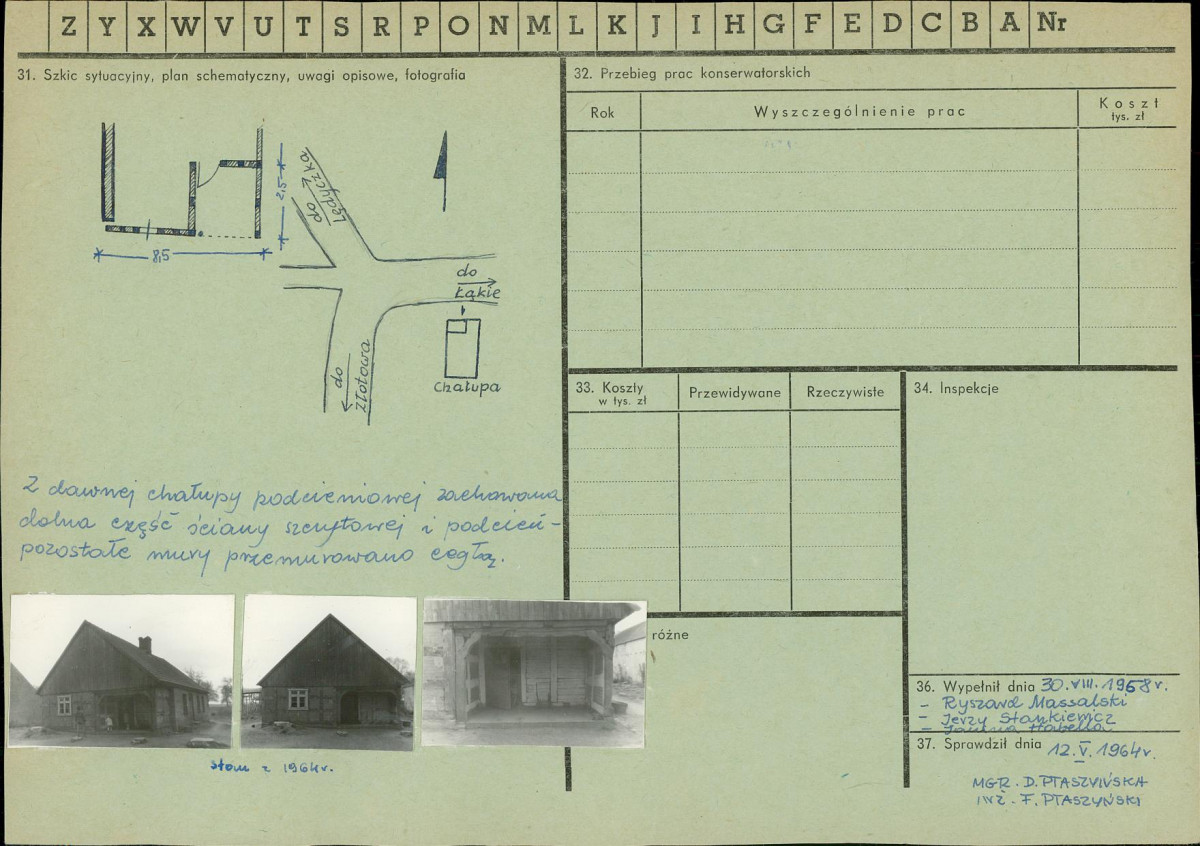 Z Y X W V U T S R P O N M L K J I H G F E D C B A Nr
31. Szkic sytuacyjny, plan schematyczny, uwagi opisowe, fotografia
do Lędyczka
2,5
8,5
do
Łąkie
do Złotowa
Chałupa
Z dawnej chałupy podcieniowej zachowana
dolna część ściany szczytowej i podcień -
pozostałe mury przemurowano cegłą.
stan z 1964r.
32. Przebieg prac konserwatorskich
Rok
Wyszczególnienie prac
Koszt
tys. zł
33. Koszty
w tys. zł
Przewidywane
Rzeczywiste
34. Inspekcje
różne
36. Wypełnił dnia 30.VIII.1958r.
- Ryszard Massalski
- Jerzy Stankiewicz
- Janina Habella
37. Sprawdził dnia 12.V.1964r.
MGR. D. PTASZYŃSKA
INŻ. F. PTASZYŃSKI